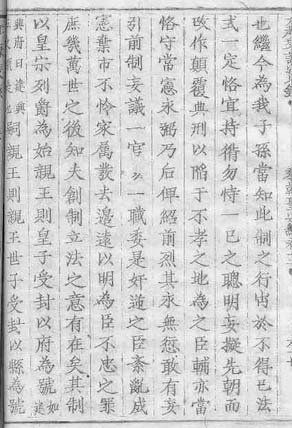 也繼今為我子孫當知此制之行出於不得已法
式一定恪宜持循勿恃一己之聰明妄擬先朝而
改作顛覆典刑以陷于不孝之地為之臣輔亦當
恪守當憲永弼乃后俾紹前烈其永無愆敢有妄
引前制妄議一官之一職委是奸逆之臣紊亂成
憲棄市不怜家属發去邊遠以明為臣不忠之罪
庶幾萬世之後知夫創制立法之意有在矣其制
以皇崇列爵為始親王則皇子受封以府為號如建
興府曰建興
嗣親王則親王世子受封以縣為號